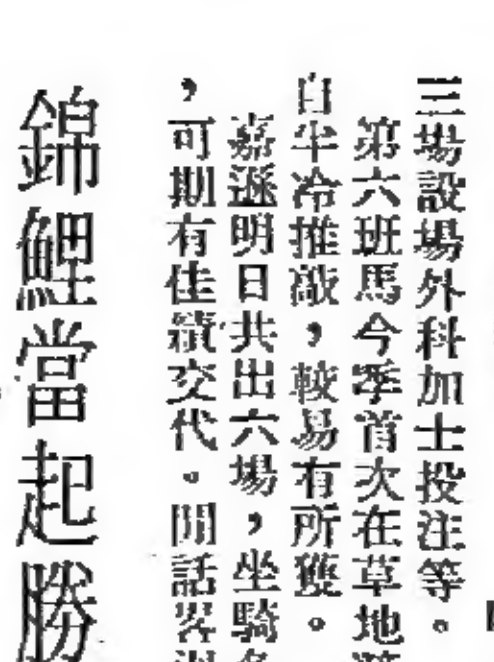 三場設場外科加士投注等。
第六班馬今季首次在草地
自半冷推敲，較易有所獲。
嘉遜明日共出六場，坐騎
，可期有佳績交代。閒話畧
錦鯉當起勝